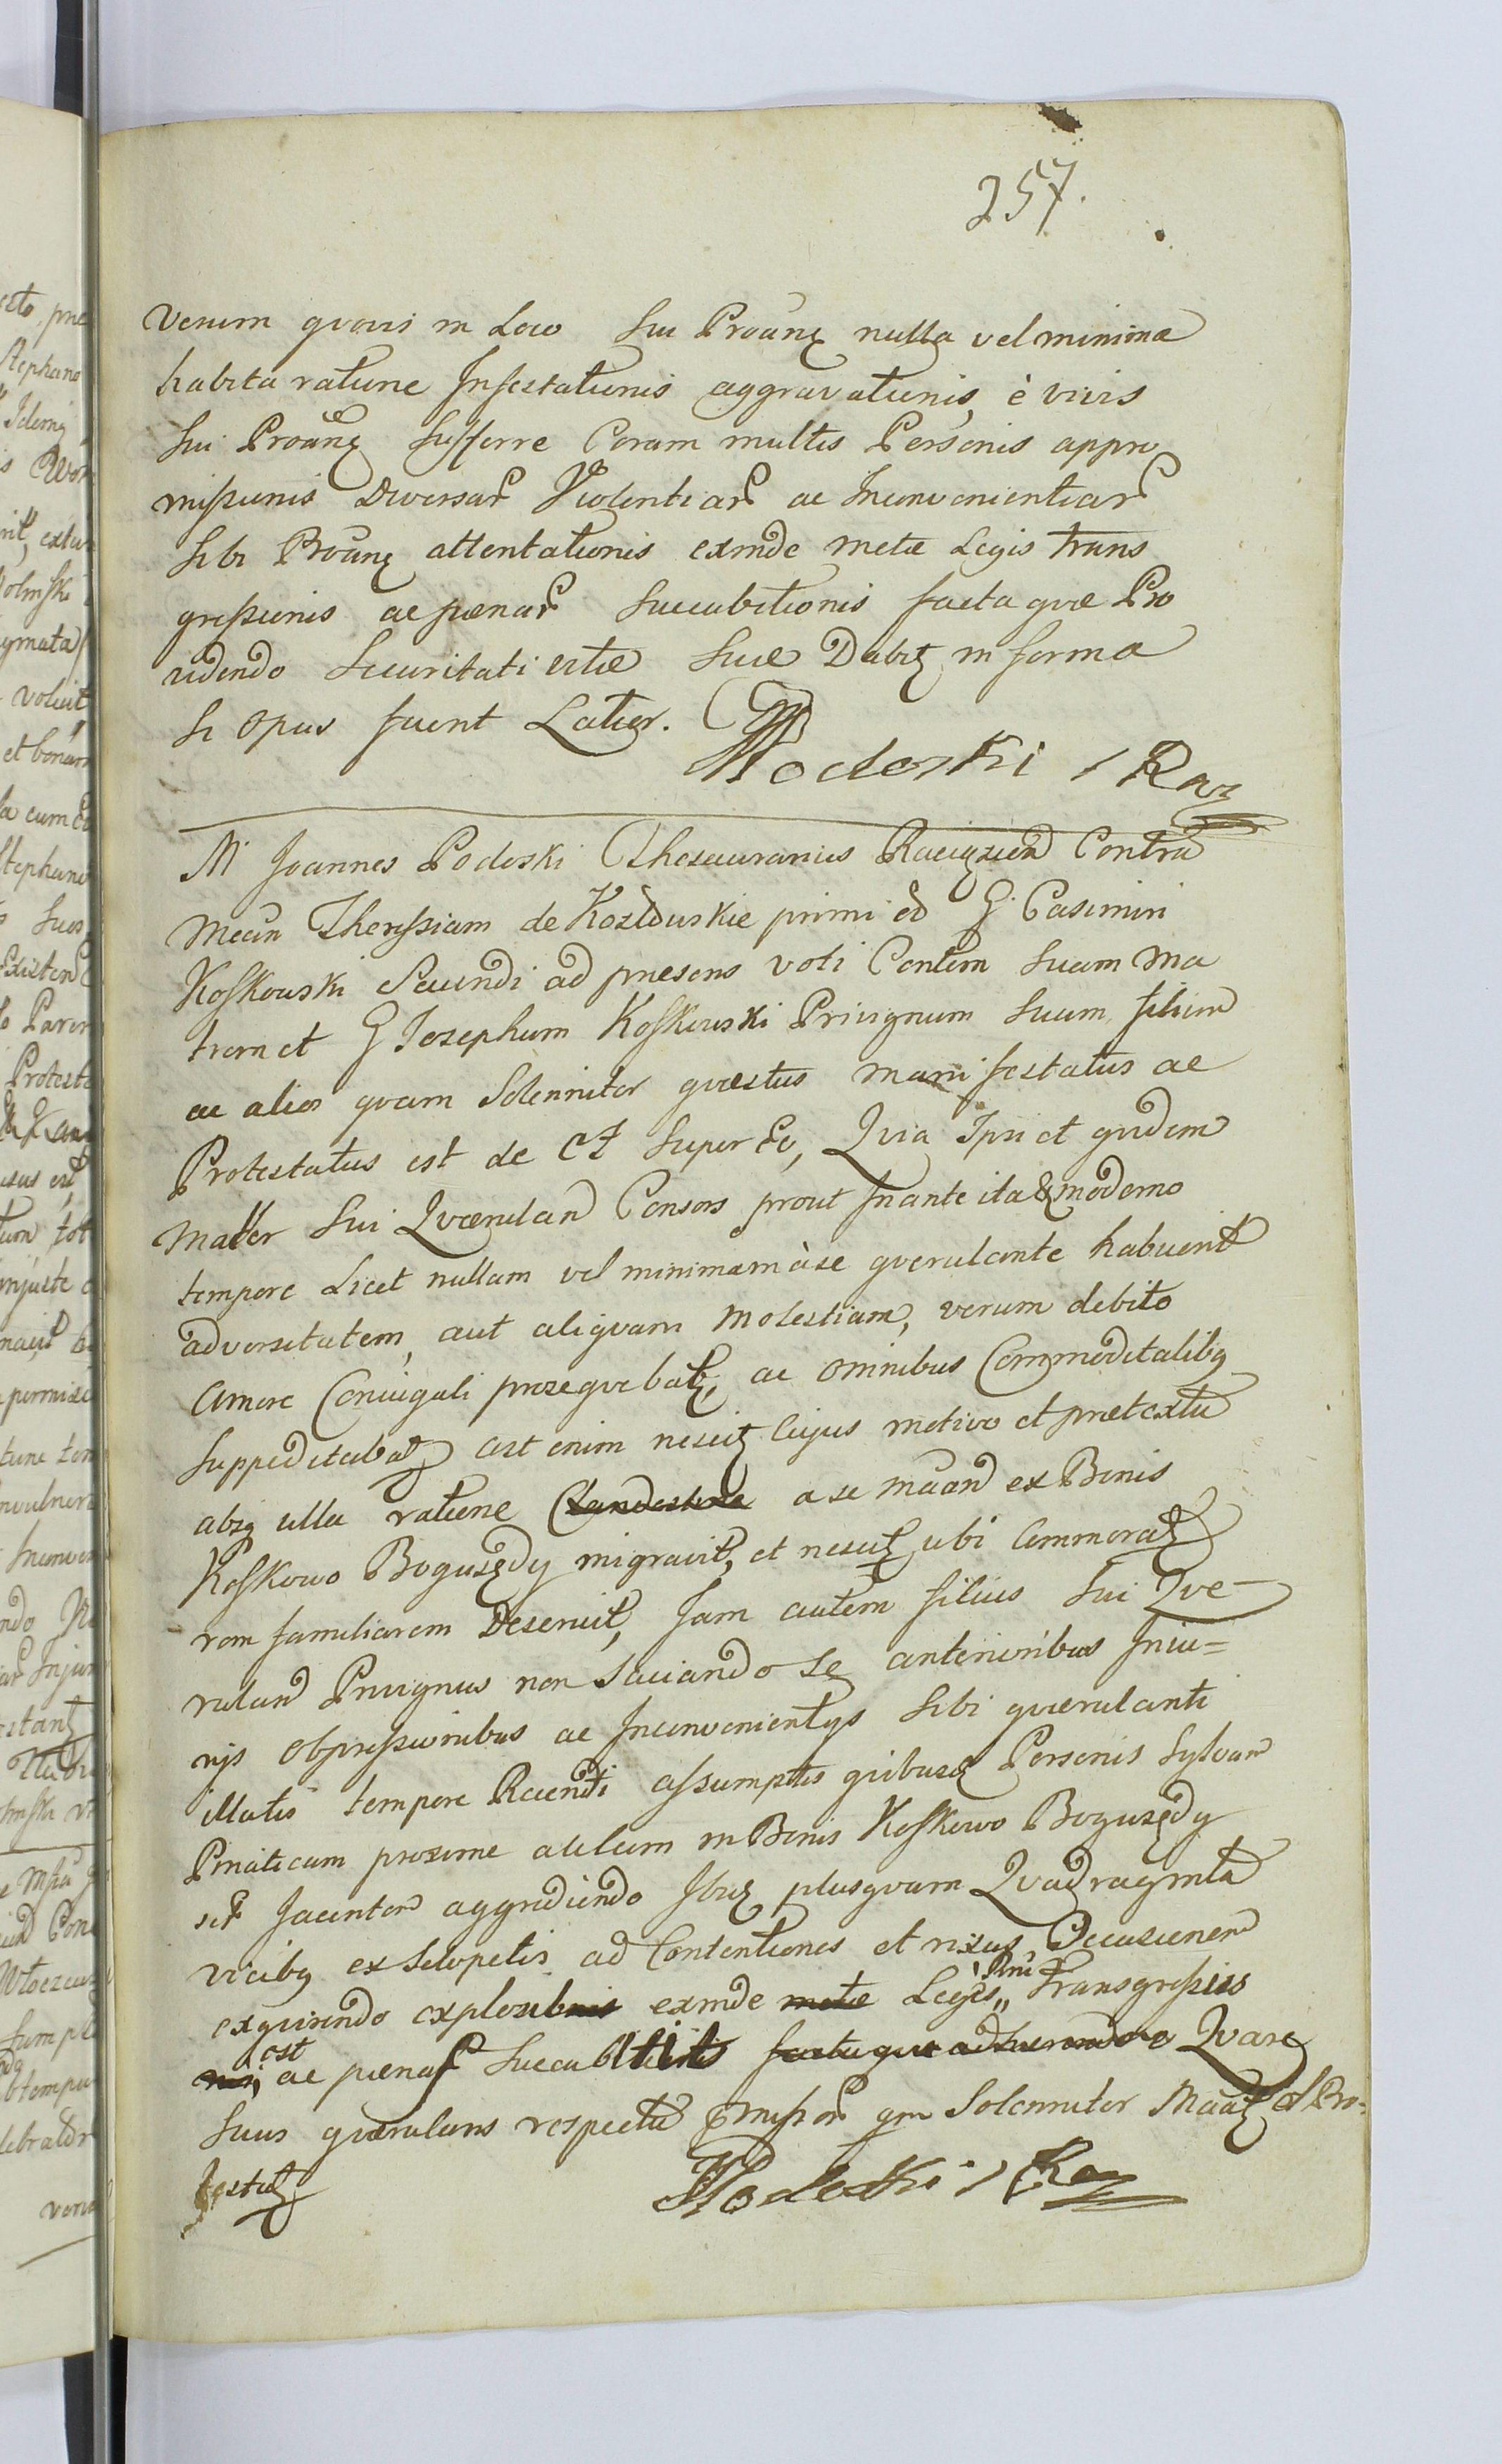 257.
Verum qvovis in Loco Sui Proãnę nulla vel minima
habita ratione Infestationis aggravationis, è vivis
Sui Proãnę Sufferre Coram multis Personis appro
missionis Diversar Violentiar ac Inconvenientiar
Sibi Proãnę attentationis exinde metæ Legis trans
gressionis ac pœnar Succubitionis factaqve Pro
videndo Securitati vitæ Suæ Dabit in forma
Si opus fuerit Latior.
Podoski
M Joannes Podoski Thesaurarius Raciązien Contra
Mcam Theressiam de Kozłowskie primi et G Casimiri
Koskowski Secundi ad præsens voti Contem Suam Ma
trem et G Josephum Koskowski Privignum Suum filium
ac alios qvam Solenniter qvestus manifestatus ac
Protestatus est de Et Super Eo, Qvia Ipsi et qvidem
Mater Sui Qværulan Consors prout Inante ita & moderno
tempore Licet nullam vel minimam à se qverulante habuerit
adversitatem, aut aliqvam Molestiam, verum debito
Amore Coniugali prosequebat, ac omnibus Commoditatibq
Suppeditabat ast enim nescit Cujus motivo et prætextu
absq ulla ratione Clandestine a se maan ex Bonis
Koskowo Bogusędy migravit, et nescit ubi Commorat
rem familiarem Deseruit, Jam autem filius Sui Qve-
rulan Privignus non Saciando Se anterioribus Iniu=
rijs Obpressionibus ac Inconvenientijs Sibi qværulanti
illatis tempore Recenti assumptis qvibusd Personis Sylvam
Pinaticam proxime in Bonis Koskowo Bogusędy
sit Jacenten aggrediendo Ibiq plusqvam Qvadraginta
vicibq ex Sclopetis ad Contentiones et rixas Occasionem
exqvirendo explosibnis exinde metæ Legis,, Transgressio
nis, est ac pœnar Succubuit Qvare
Suus qværulans respectu pmissor qm Solenniter Maat et Pro=
testat
Podoski